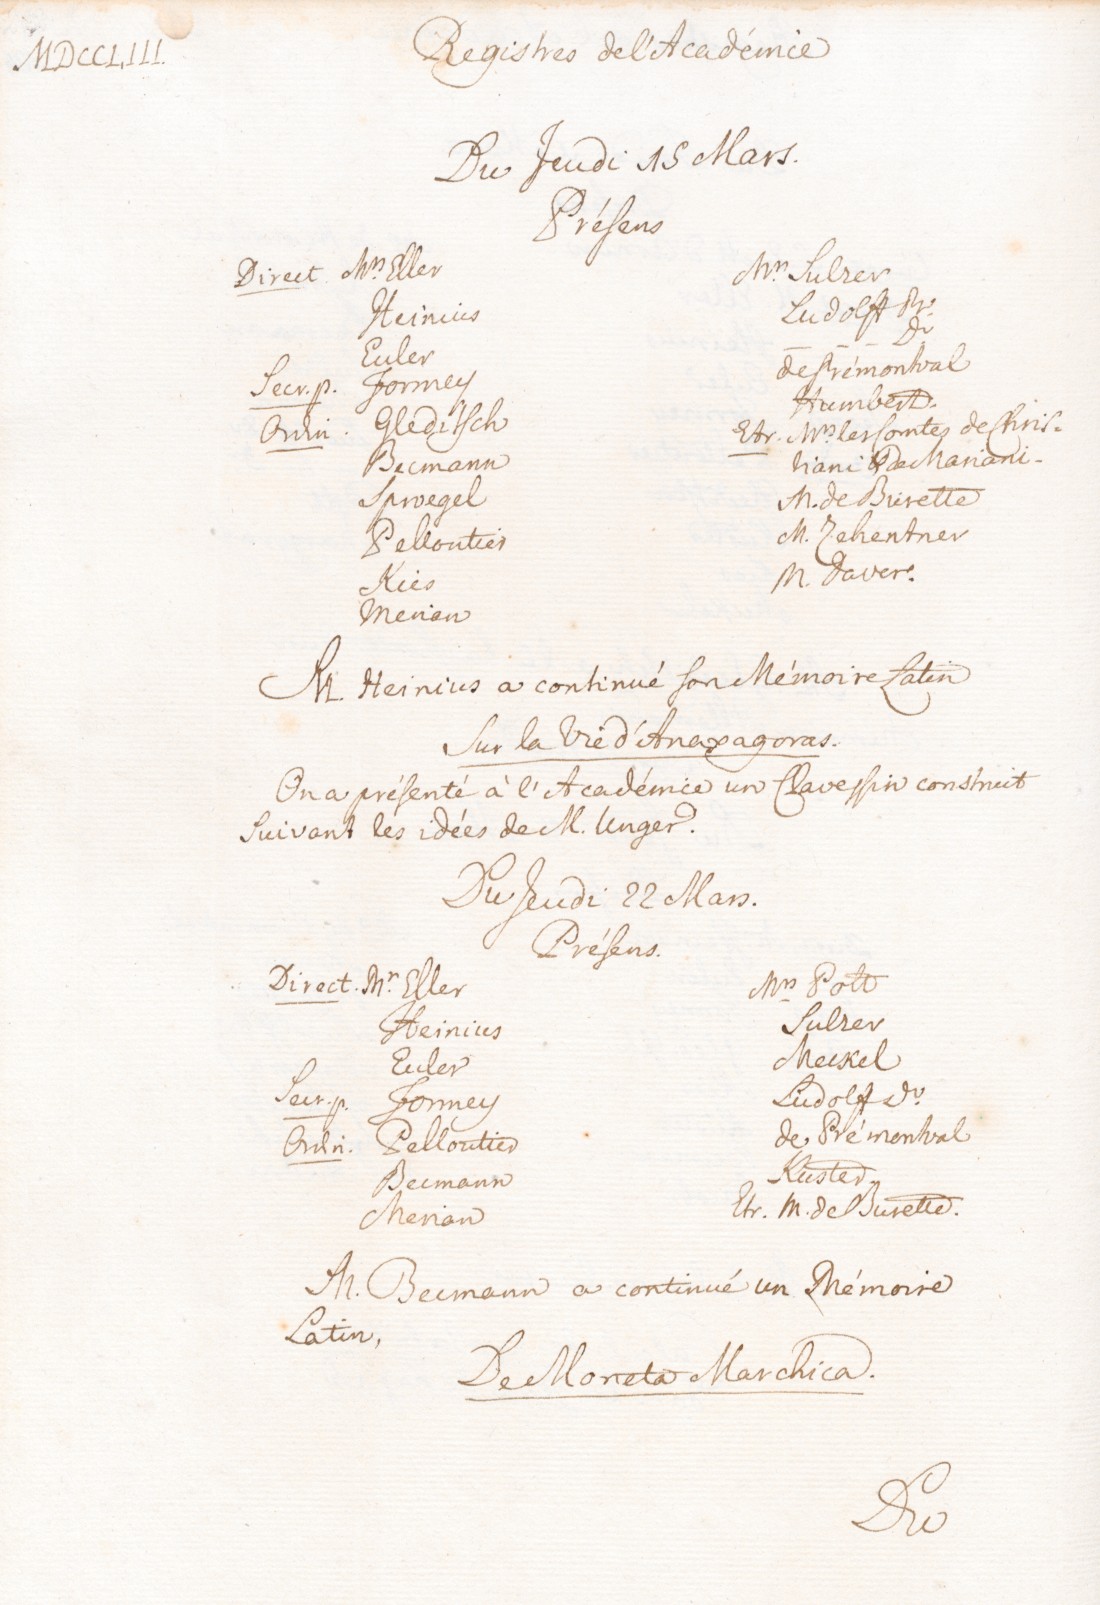 MDCCLIII.
Registres de l'Académie
Du Jeudi 15 Mars.
Présens
Direct. Mrs Eller
Heinius
Euler
Secr. p. Formey
Ordin. Gleditsch
Becmann
Sproegel
Pelloutier
Kies
Merian
Mrs Sulzer
Ludolff Pr.
— — — Dr
de Prémontval
Humbert.
Etr. Mrs les Comtes de Chris-
tiani & de Mariani.
M. de Burette
M. Zehentner
M. Daver.
M. Heinius a continué son Mémoire Latin
Sur la Vie d'Anaxagoras.
On a présenté à l'Académie un Clavessin construit
suivant les idées de M. Unger.
Du Jeudi 22 Mars.
Présens.
Direct. Mr Eller
Heinius
Euler
Secr. p. Formey
Ordin. Pelloutier
Becmann
Merian
Mrs Pott
Sulzer
Meckel
Ludolff Dr
de Prémontval
Kuster
Etr. M. de Burette.
M. Becmann a continué un Mémoire
Latin,
De Moneta Marchica.
Du